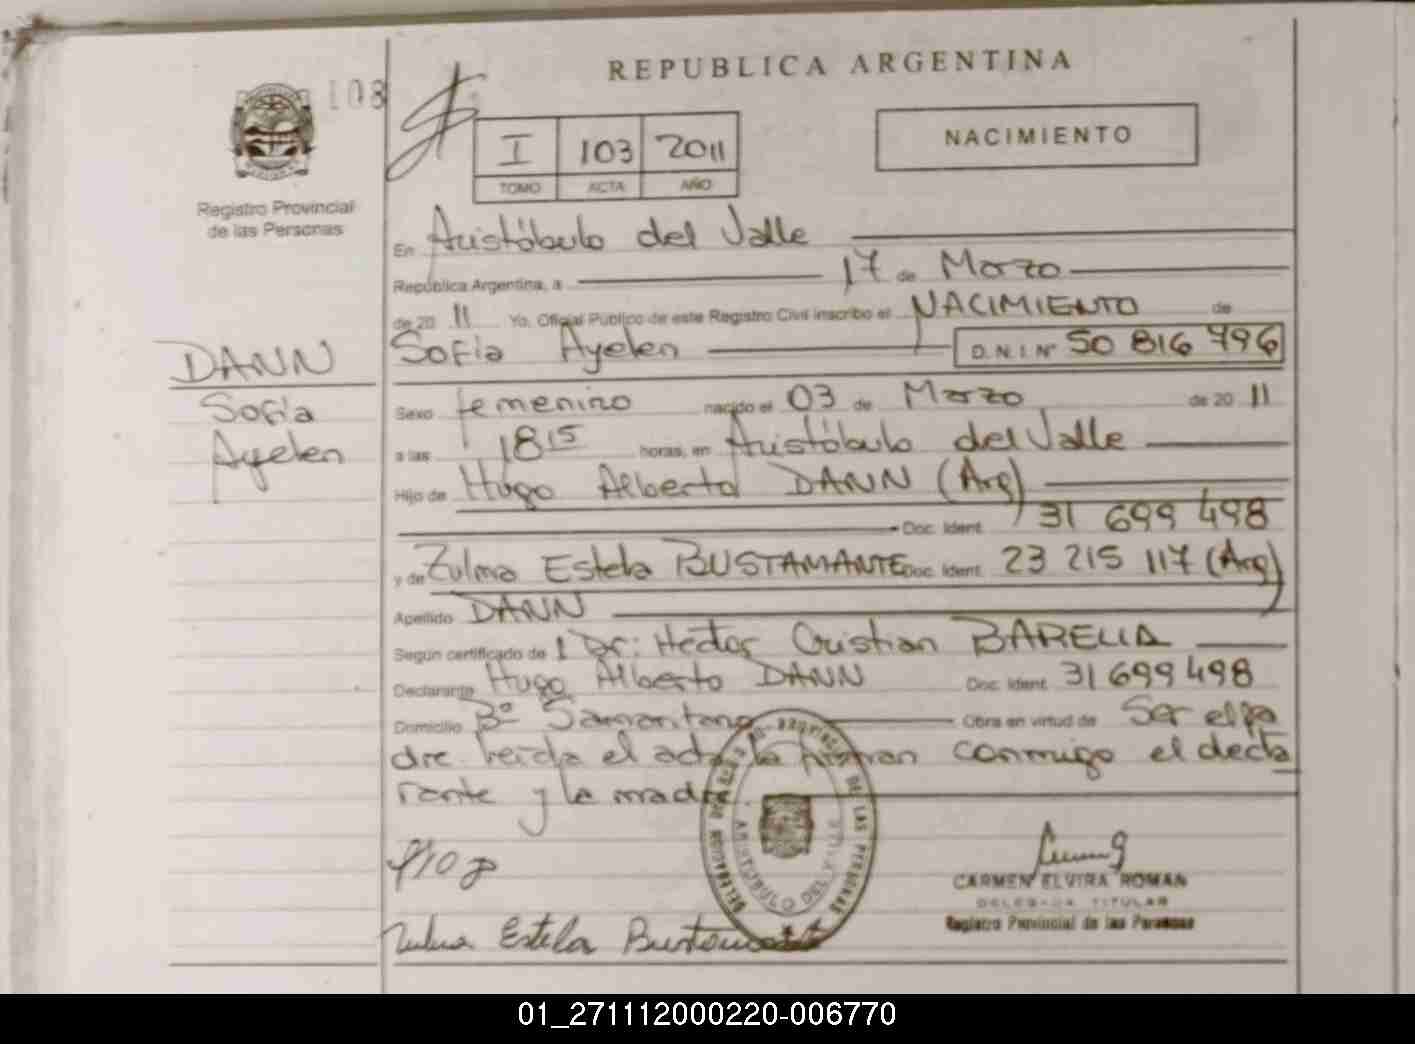 REPUBLICA ARGENTINA
108
I 103 2011
TOMO ACTA AÑO
NACIMIENTO
Registro Provincial
de las Personas
En Aristóbulo del Valle
República Argentina, a 17 de Marzo
de 20 11 Yo, Oficial Público de este Registro Civil inscribo el NACIMIENTO de
Sofía Ayelen D.N.I. Nº 50 816 796
DANN
Sofía
Ayelen
Sexo femenino nacido el 03 de Marzo de 20 11
a las 18 15 horas, en Aristóbulo del Valle
Hijo de Hugo Alberto DANN (Arg)
Doc. Ident. 31 699 498
y de Zulma Estela BUSTAMANTE Doc. Ident. 23 215 117 (Arg)
Apellido DANN
Según certificado de 1 Dr: Hector Cristian
Declarante Hugo Alberto DANN Doc. Ident. 31 699 498
Domicilio Bº Samaritano Obra en virtud de Ser el pa
dre leída el acta la firman conmigo el decla
rante y la madre.
DELEGACION PROVINCIAL DE LAS PERSONAS
ARISTOBULO DEL VALLE
CARMEN ELVIRA ROMAN
DELEGADA TITULAR
Registro Provincial de las Personas
Zulma Estela Bustamante
01_271112000220-006770